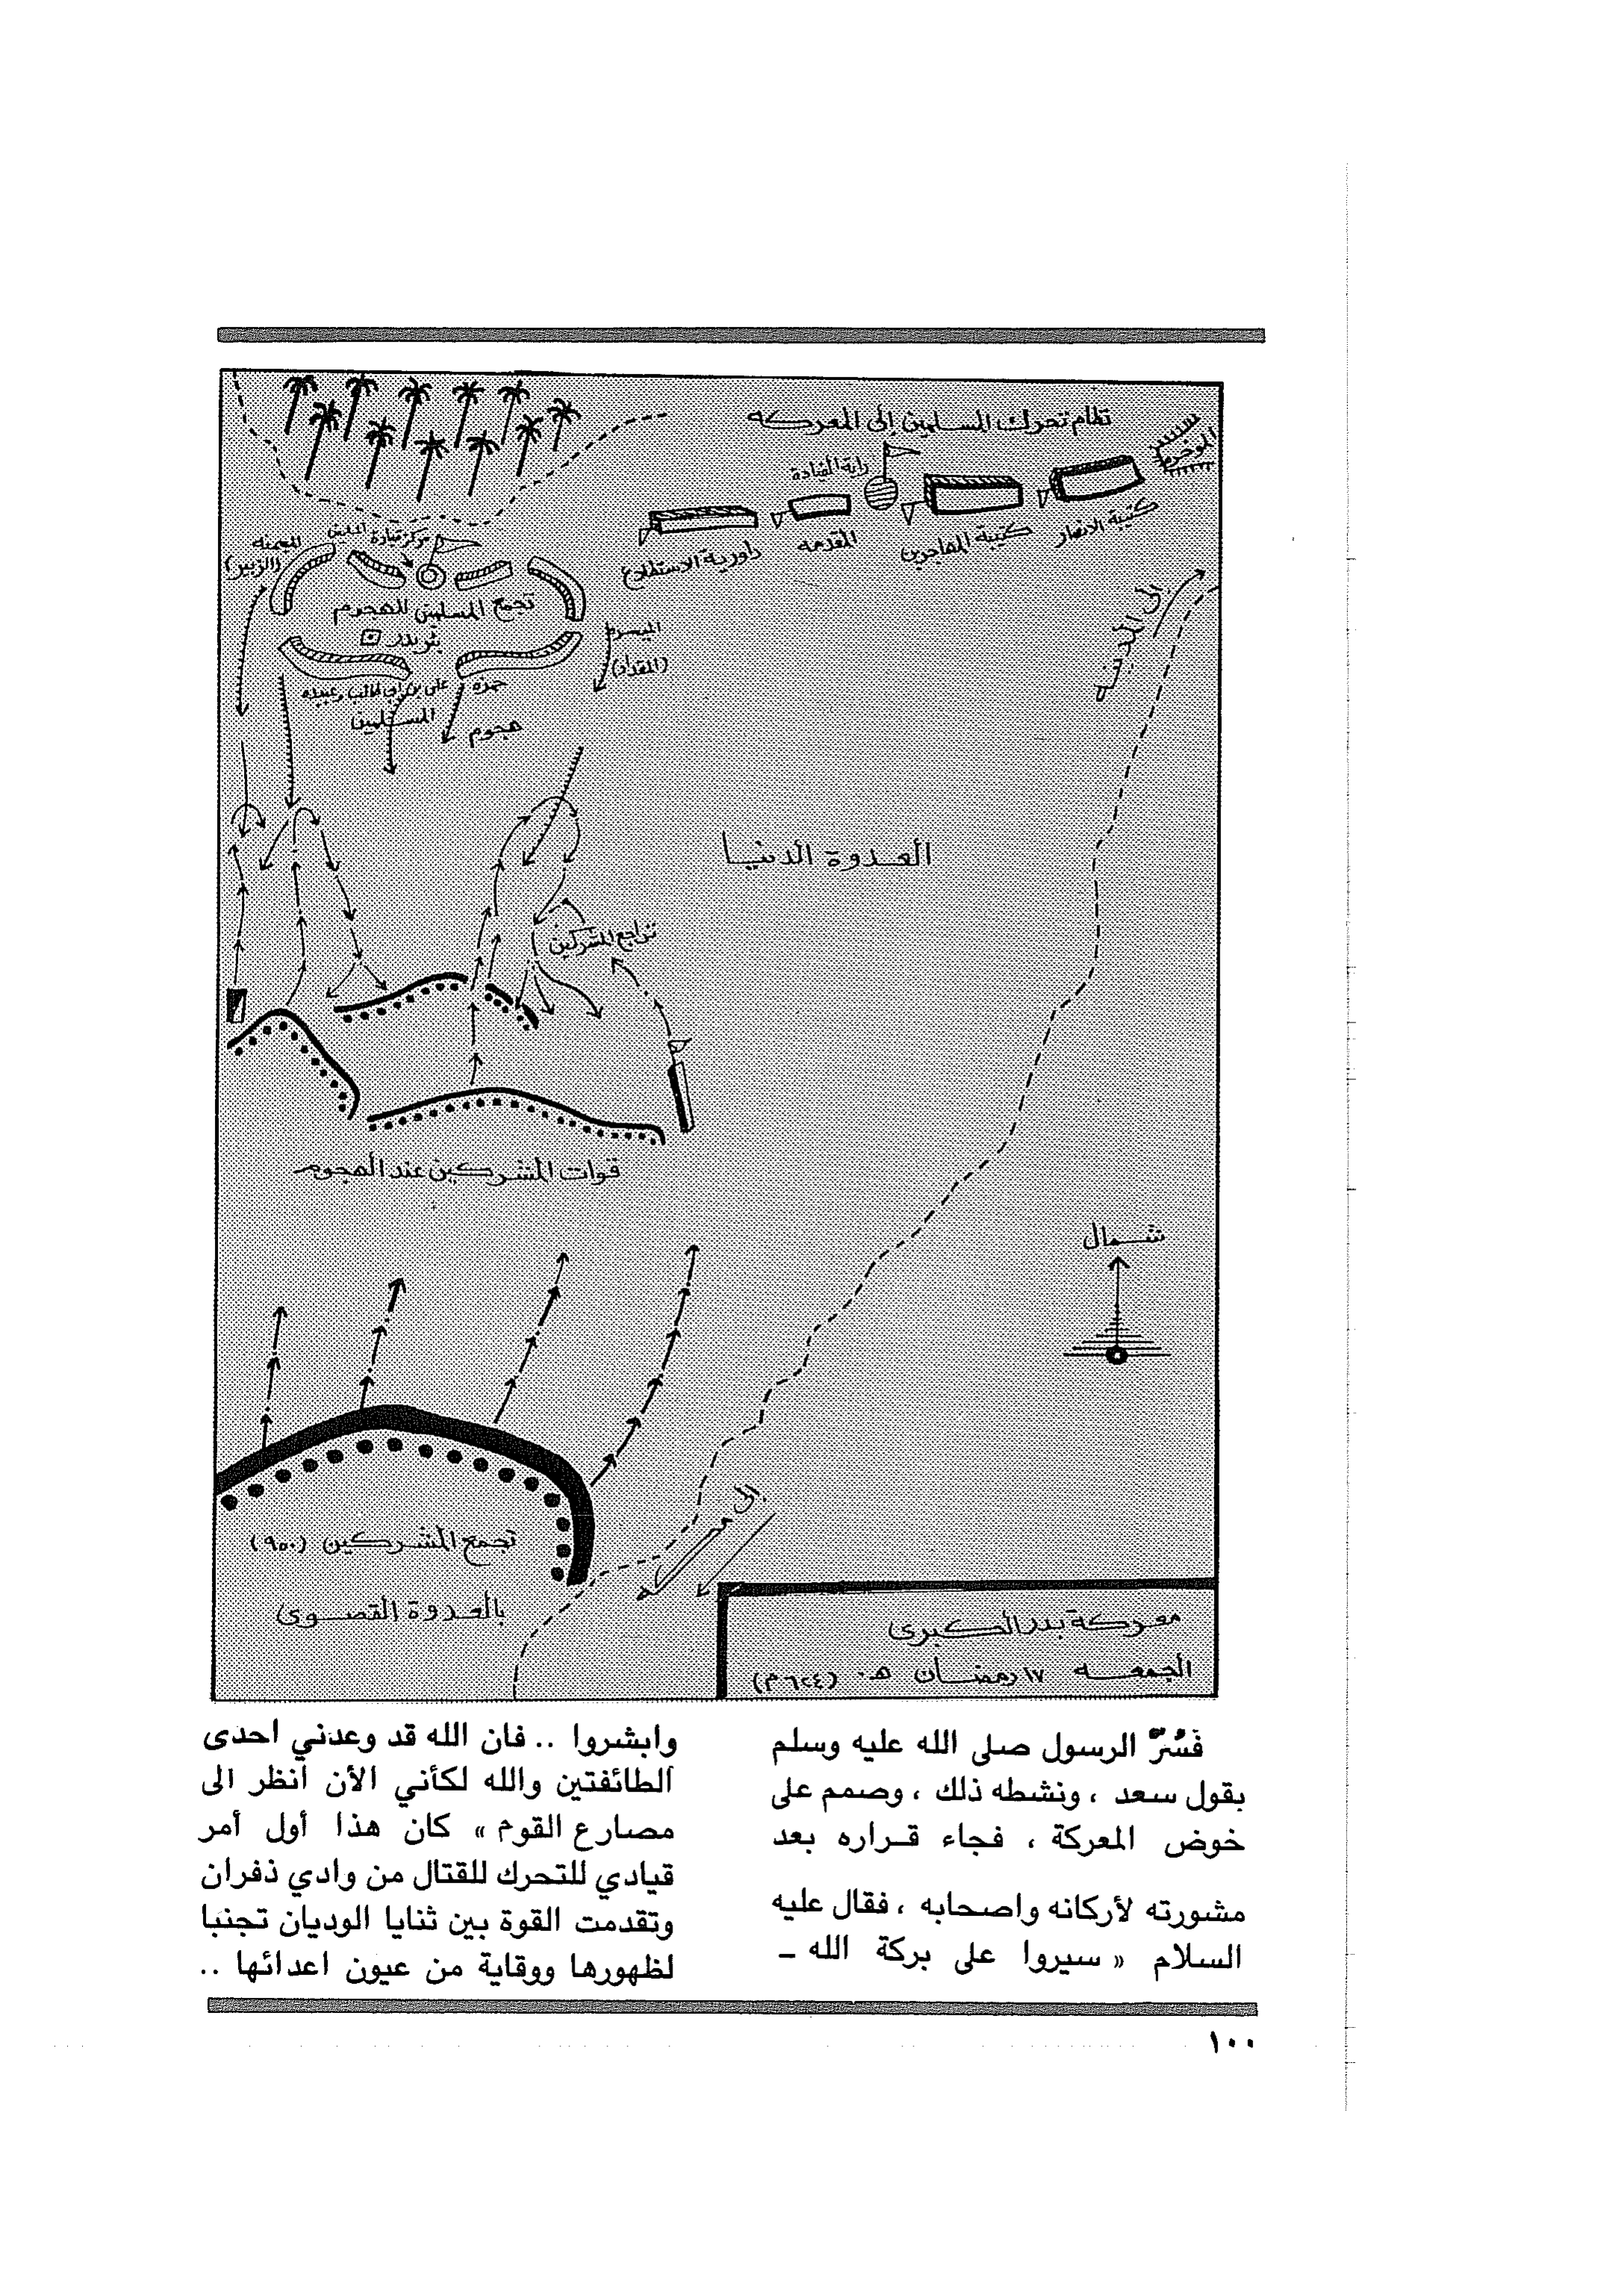 نظام تحرك المسلمين الى المعركه
المؤخرة
كتيبة الانصار
كتيبة المهاجرين
راية القيادة
المقدمه
داورية الاستطلاع
مركز قيادة المسلمين
الميمنه
(الزبير)
تجمع المسلمين للهجوم
بئر بدر
الميسره
(المقداد)
حمزه
علي بن ابي طالب وعبيده
هجوم
المسلمين
الى المدينه
العدوة الدنيا
تراجع المشركين
قوات المشركين عند الهجوم
شمال
الى
تجمع المشركين (٩٥٠)
بالعدوة القصوى
معركة بدر الكبرى
الجمعه ١٧ رمضان ٢هـ (٦٢٤م)
فَسُرَّ الرسول صلى الله عليه وسلم
بقول سعد ، ونشطه ذلك ، وصمم على
خوض المعركة ، فجاء قراره بعد
مشورته لأركانه واصحابه ، فقال عليه
السلام « سيروا على بركة الله ـ
وابشروا .. فان الله قد وعدني احدى
الطائفتين والله لكأني الأن أنظر الى
مصارع القوم » كان هذا أول أمر
قيادي للتحرك للقتال من وادي ذفران
وتقدمت القوة بين ثنايا الوديان تجنبا
لظهورها ووقاية من عيون اعدائها ..
١٠٠